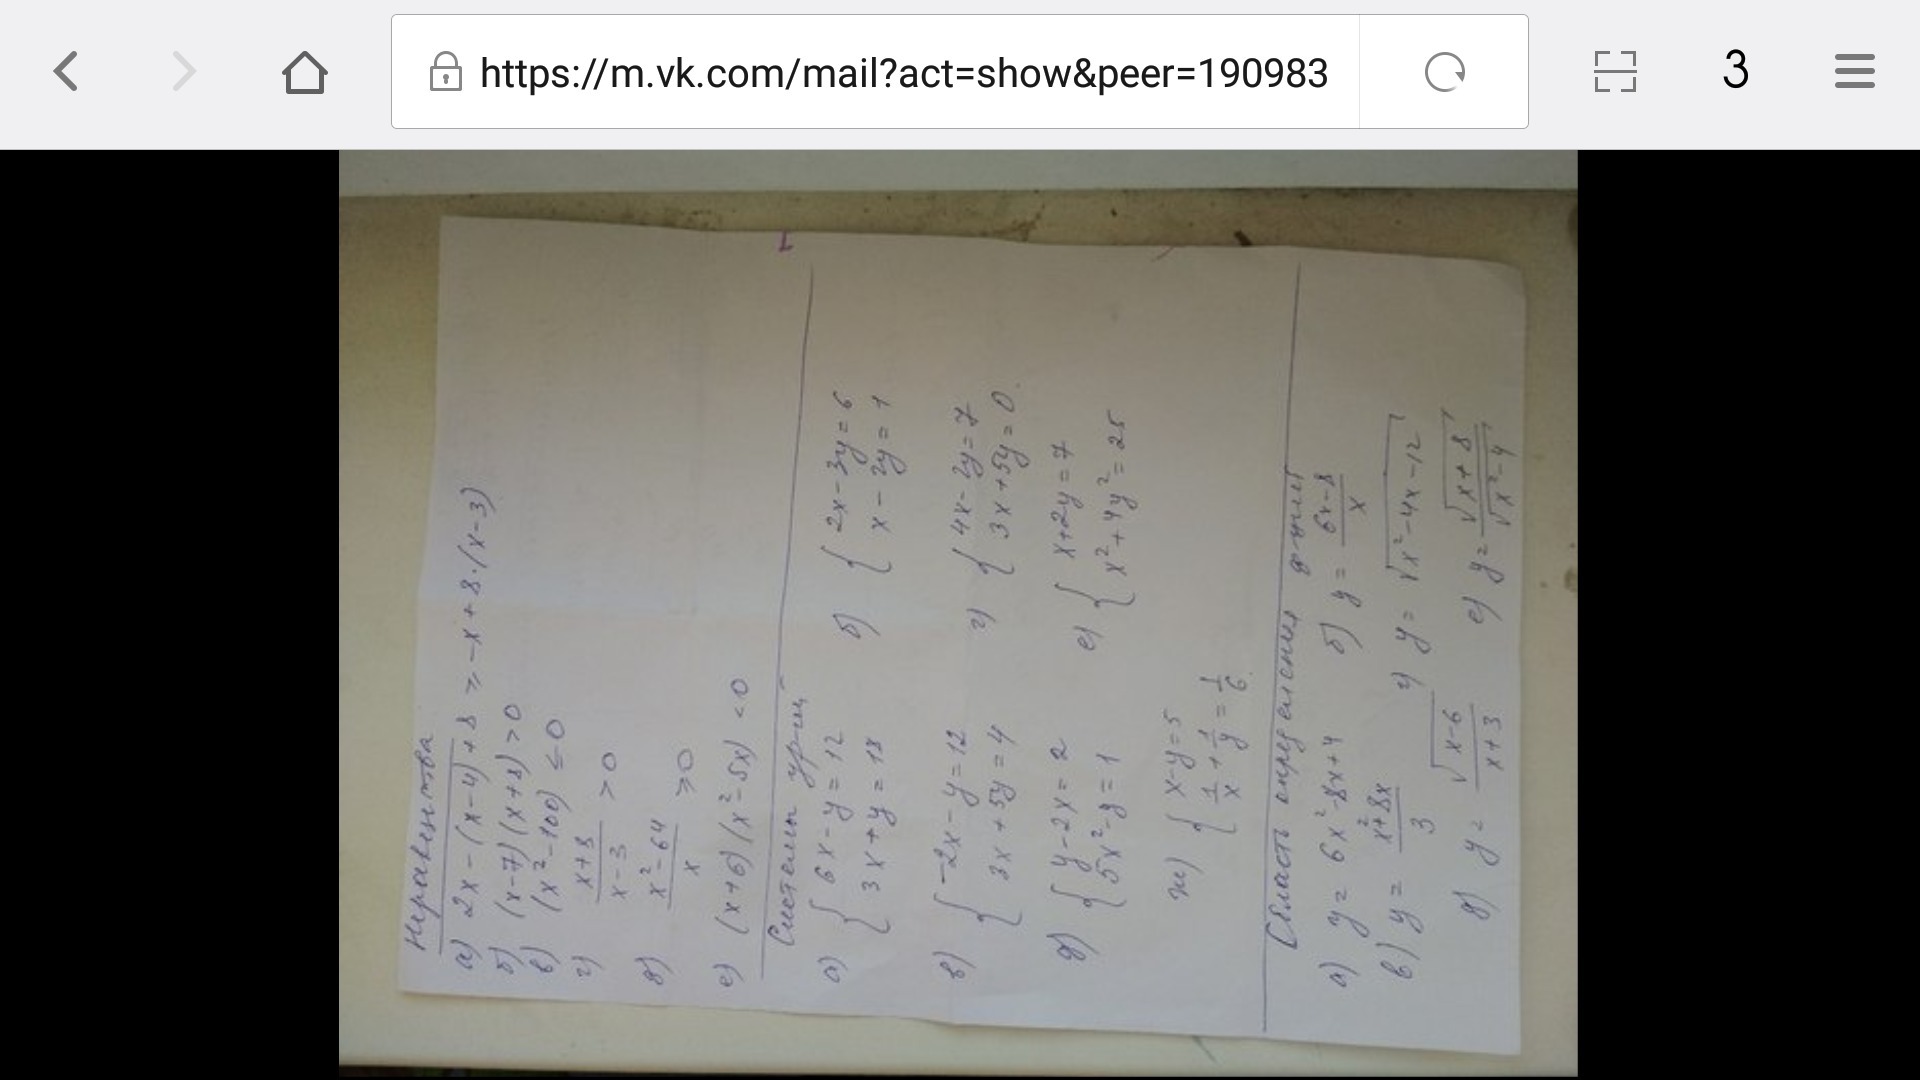 https://m.vk.com/mail?act=show&peer=190983
3
Неравенства
а) 2x - (x-4) + 8 ≥ -x + 8·(x-3)
б) (x-7)(x+8) > 0
в) (x² - 100) ≤ 0
г) x+8 / x-3 > 0
д) x²-64 / x ≥ 0
е) (x+6)(x²-5x) < 0
Системы ур-ий
а) { 6x - y = 12
3x + y = 18
б) { 2x - 3y = 6
x - 2y = 1
в) { -2x - y = 12
3x + 5y = 4
г) { 4x - 2y = 7
3x + 5y = 0.
д) { y - 2x = 2
5x² - y = 1
е) { x + 2y = 7
x² + 4y² = 25
ж) { x - y = 5
1/x + 1/y = 1/6
Область определения ф-ции
а) y = 6x² - 8x + 4
б) y = 6x-8 / x
в) y = x²+8x / 3
г) y = √x²-4x-12
д) y = √x-6 / x+3
е) y = √x+8 / √x²-4